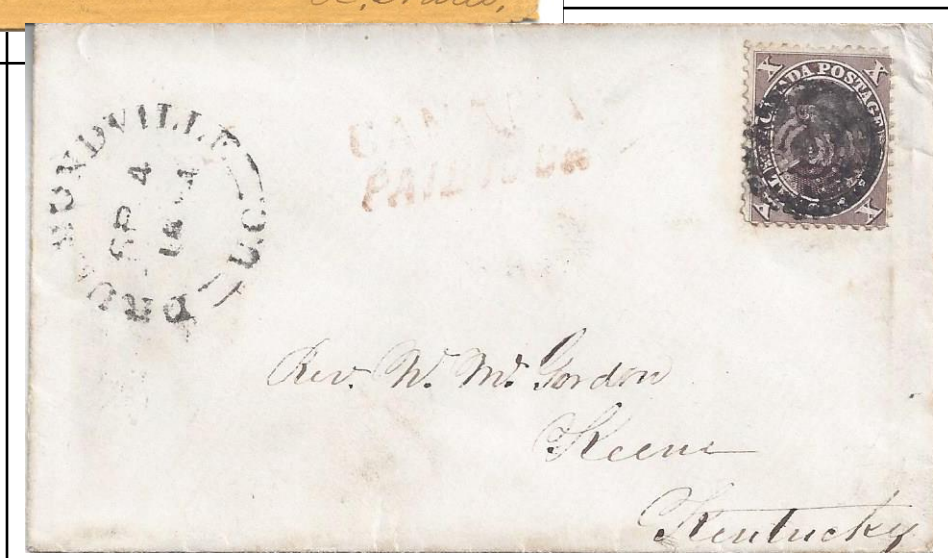 DRUMMONDVILLE
SP 4
CANADA
PAID 10 Cts
X CANADA POSTAGE X
X X
Rev. W. M. Gordon
Keene
Kentucky